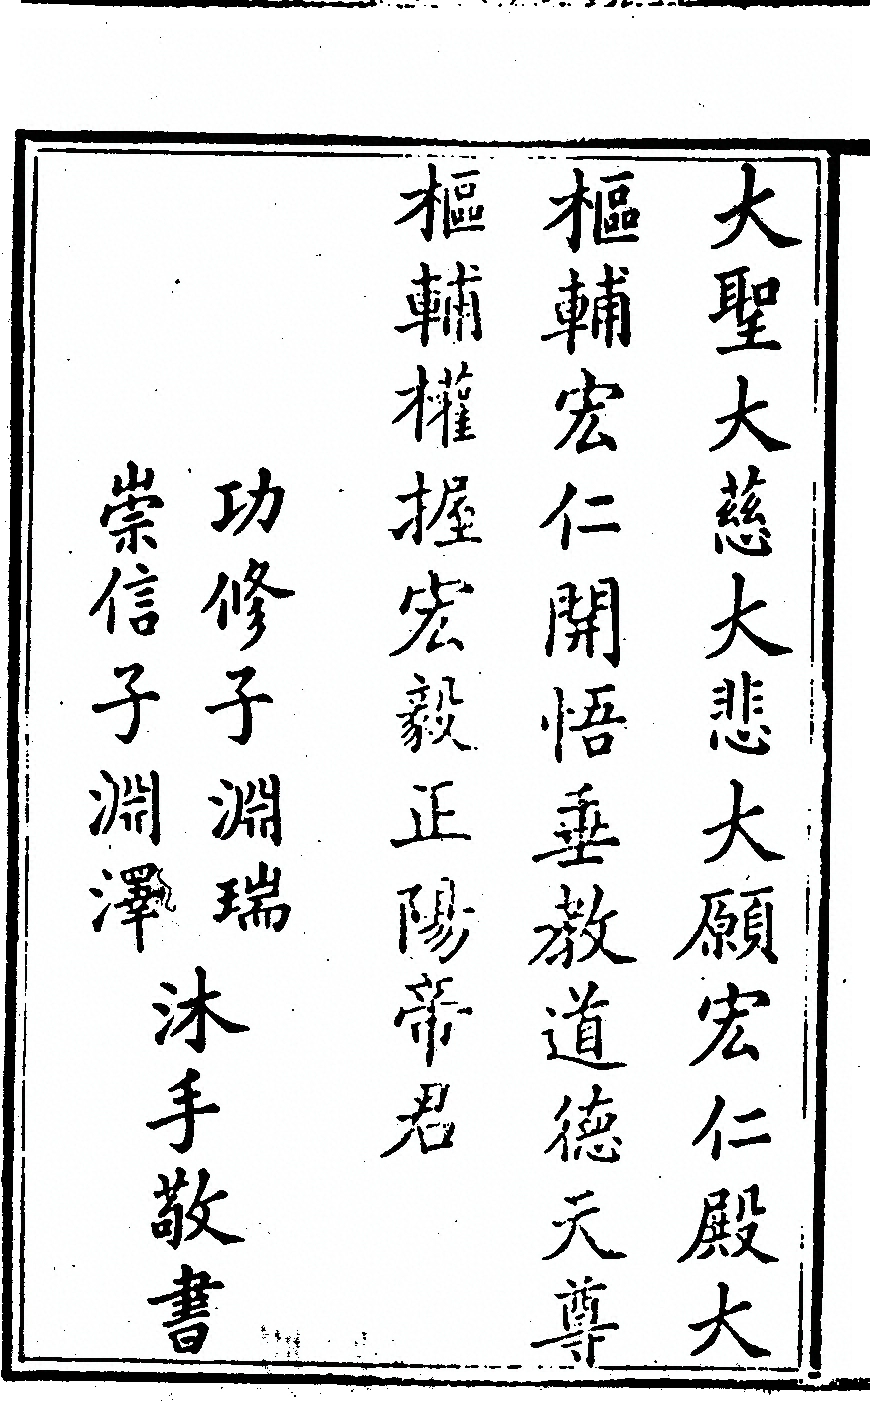 大聖大慈大悲大願宏仁殿大
樞輔宏仁開悟垂教道德天尊
樞輔權握宏毅正陽帝君
功修子淵瑞
崇信子淵澤
沐手敬書